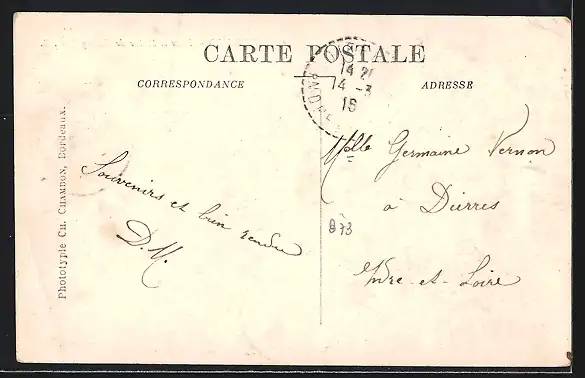 CARTE POSTALE
CORRESPONDANCE
ADRESSE
14 21
14 -3
16
Phototypie CH. CHAMBON, Bordeaux.
Souvenirs et bien rendue
D.M.
Mlle Germaine Vernon
à Dierres
873
Indre-et-Loire